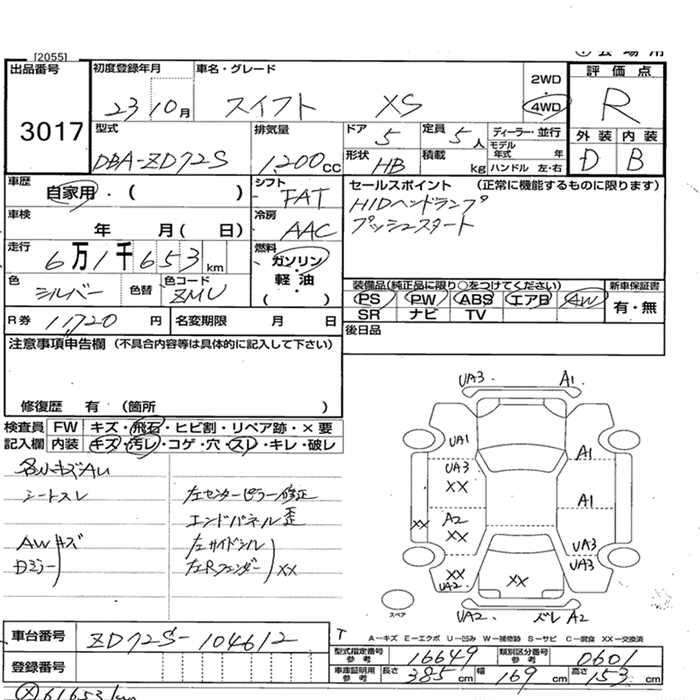 [2055]
出品番号 3017
初度登録年月 23 10月
車名・グレード スイフト XS
2WD 4WD
評価点 R
外装 D 内装 B
型式 DBA-ZD72S
排気量 1,200cc
ドア 5 定員 5人
形状 HB 積載 kg
ディーラー・並行
モデル年式 年
ハンドル 左・右
車歴 自家用・( )
シフト FAT
車検 年 月( 日)
冷房 AAC
走行 6万1千653km
燃料 ガソリン・軽油・( )
色 シルバー 色替 色コード ZMU
R券 11720円 名変期限 月 日
セールスポイント (正常に機能するものに限ります)
HIDヘッドランプ
プッシュスタート
装備品(純正品に限り○をつけてください)
PS PW ABS エアB AW
SR ナビ TV
新車保証書 有・無
後日品
注意事項申告欄 (不具合内容等は具体的に記入して下さい)
修復歴 有 (箇所 )
検査員 FW キズ・飛石・ヒビ割・リペア跡・×要
記入欄 内装 キズ・汚レ・コゲ・穴・スレ・キレ・破レ
小キズAU
シートスレ
AWキズ
Dミラー
左センターピラー修正
エンドパネル歪
左サイドシル
左Rフェンダー XX
UA3 A1
UA1 A1
UA3 XX A1
XX A2 XX UA3
XX UA2 XX UA3
スペア
UA2 ズレA2
A─キズ E─エクボ U─凹み W─補修跡 S─サビ C─腐食 XX─交換済
車台番号 ZD72S-104612
登録番号
型式指定番号 参考 16649 類別区分番号 参考 0601
車庫証明用 参考 長さ 385cm 幅 169cm 高さ 153cm
61653km